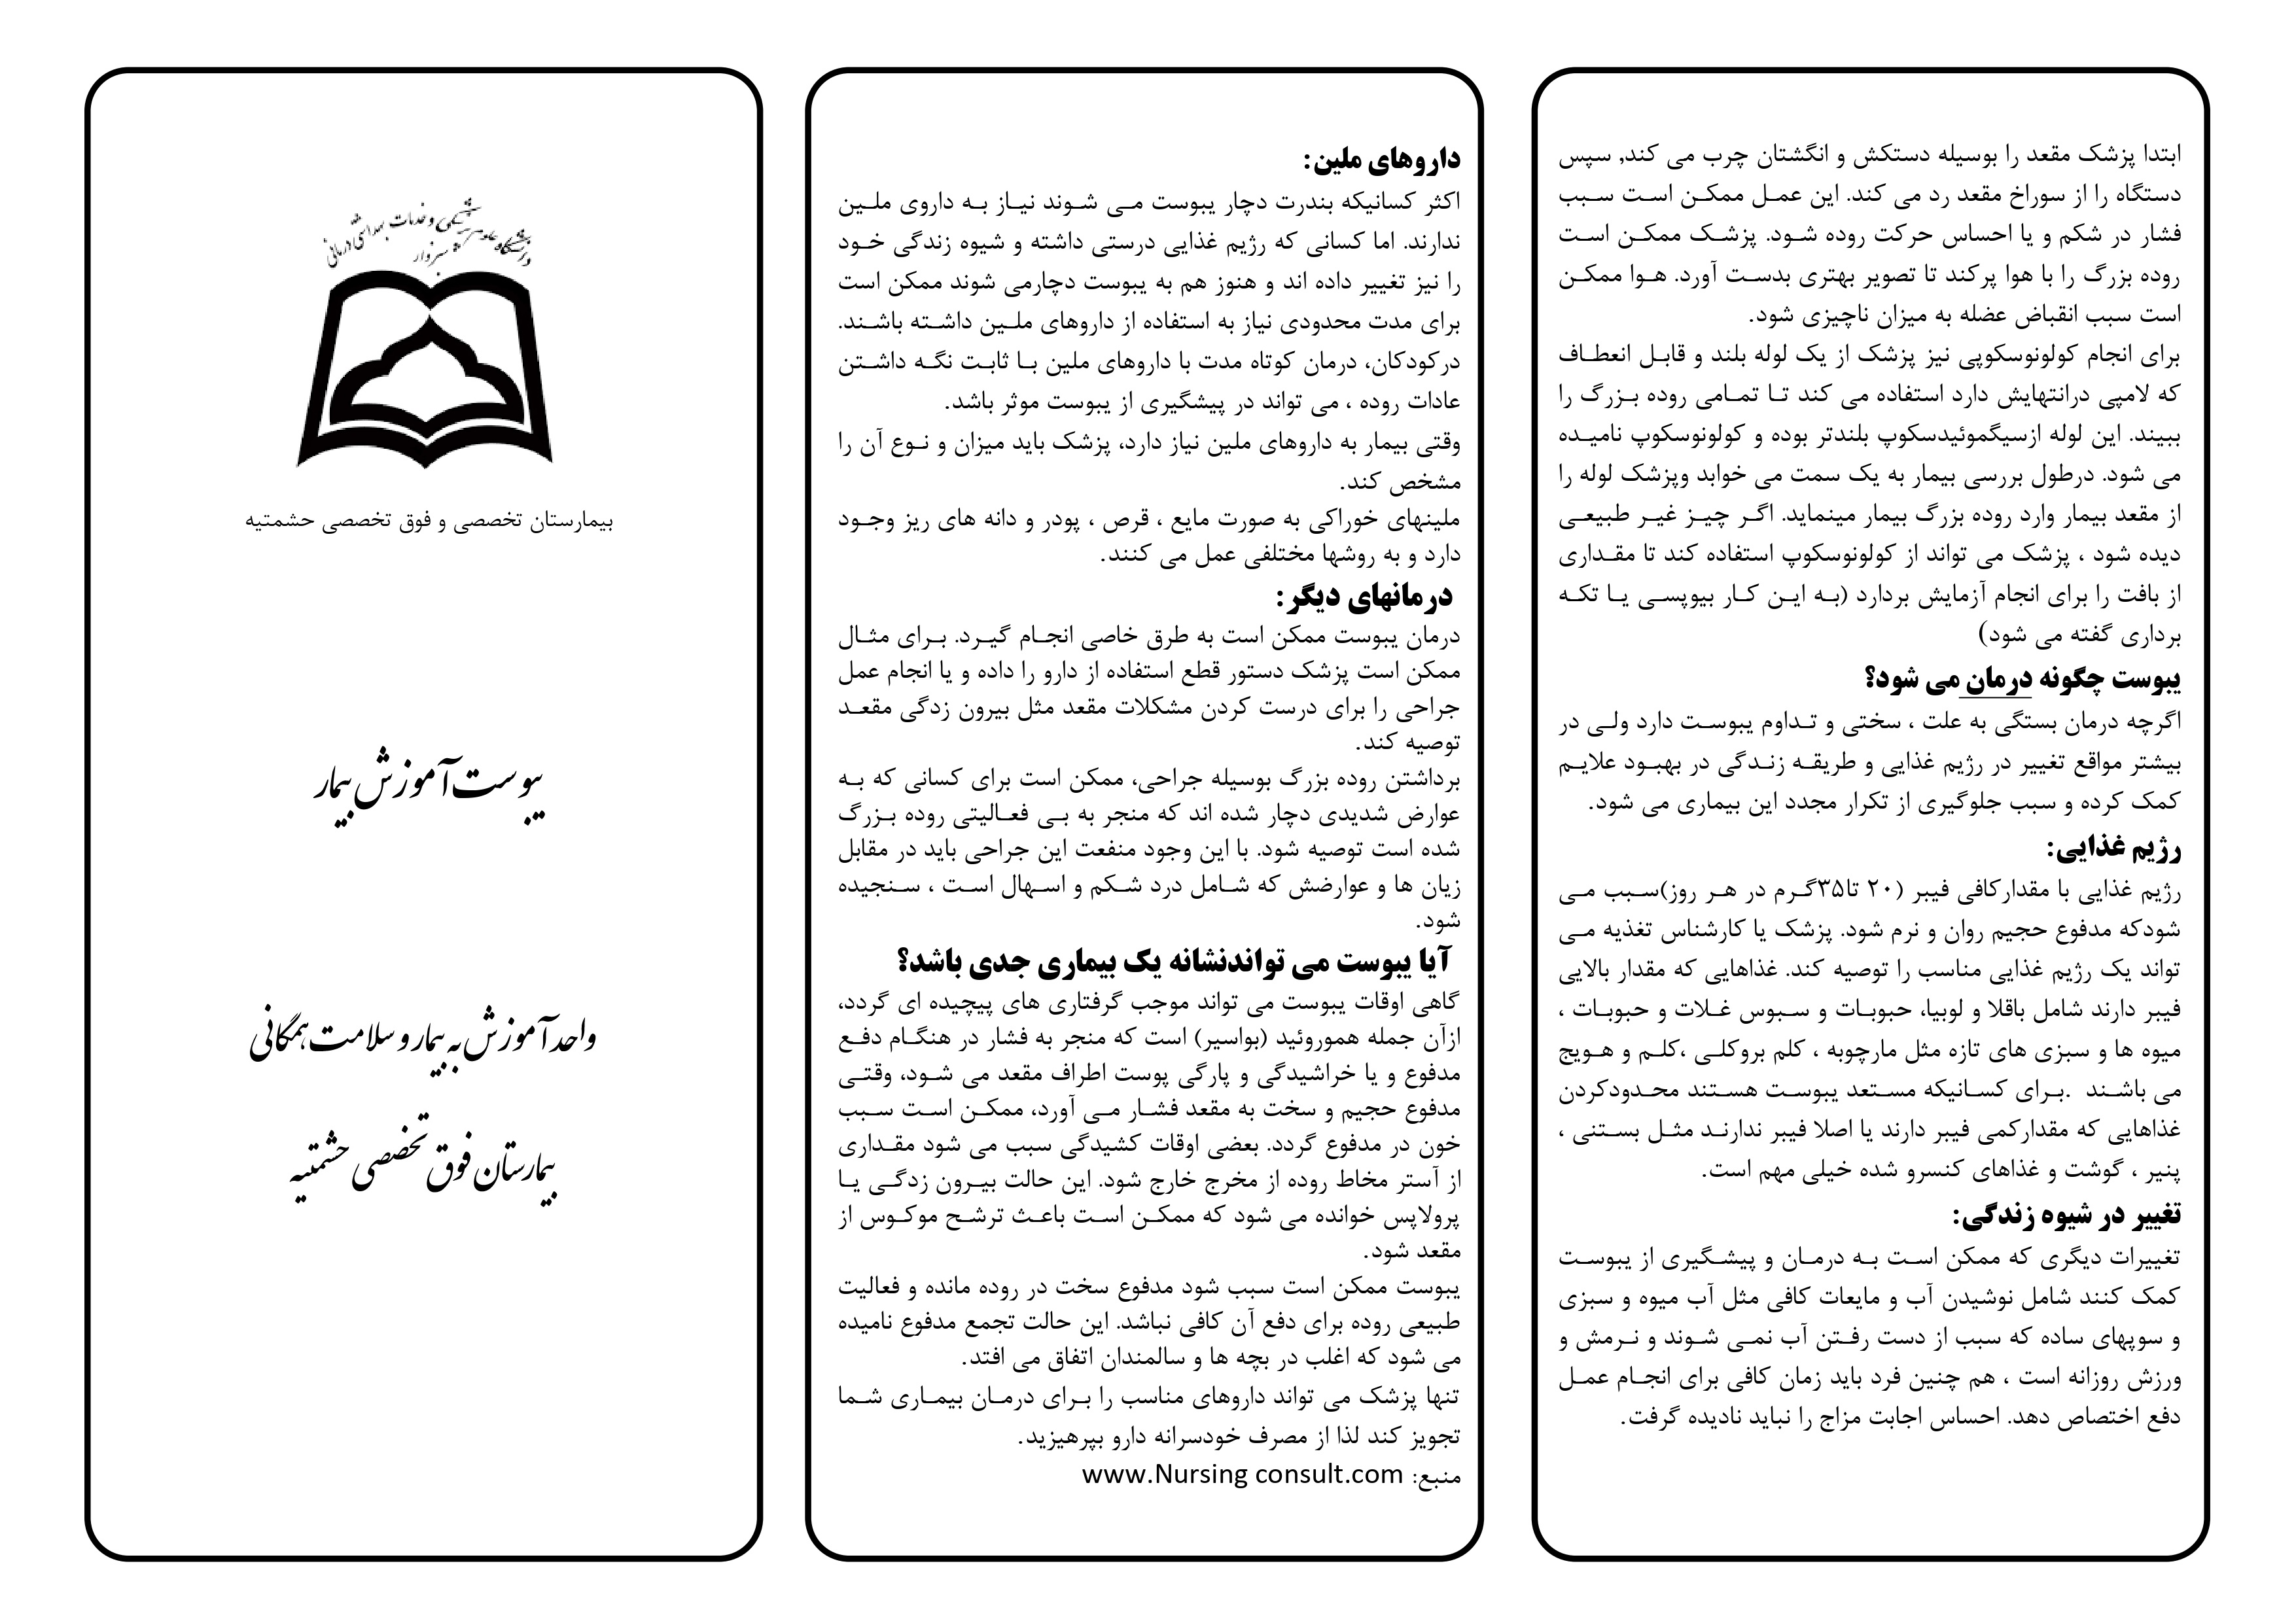 ابتدا پزشک مقعد را بوسیله دستکش و انگشتان چرب می کند, سپس
دستگاه را از سوراخ مقعد رد می کند. این عمل ممکن است سبب
فشار در شکم و یا احساس حرکت روده شود. پزشک ممکن است
روده بزرگ را با هوا پرکند تا تصویر بهتری بدست آورد. هوا ممکن
است سبب انقباض عضله به میزان ناچیزی شود.
برای انجام کولونوسکوپی نیز پزشک از یک لوله بلند و قابل انعطاف
که لامپی درانتهایش دارد استفاده می کند تا تمامی روده بزرگ را
ببیند. این لوله ازسیگموئیدسکوپ بلندتر بوده و کولونوسکوپ نامیده
می شود. درطول بررسی بیمار به یک سمت می خوابد وپزشک لوله را
از مقعد بیمار وارد روده بزرگ بیمار مینماید. اگر چیز غیر طبیعی
دیده شود ، پزشک می تواند از کولونوسکوپ استفاده کند تا مقداری
از بافت را برای انجام آزمایش بردارد (به این کار بیوپسی یا تکه
برداری گفته می شود)
یبوست چگونه درمان می شود؟
اگرچه درمان بستگی به علت ، سختی و تداوم یبوست دارد ولی در
بیشتر مواقع تغییر در رژیم غذایی و طریقه زندگی در بهبود علایم
کمک کرده و سبب جلوگیری از تکرار مجدد این بیماری می شود.
رژیم غذایی:
رژیم غذایی با مقدارکافی فیبر (۲۰ تا۳۵گرم در هر روز)سبب می
شودکه مدفوع حجیم روان و نرم شود. پزشک یا کارشناس تغذیه می
تواند یک رژیم غذایی مناسب را توصیه کند. غذاهایی که مقدار بالایی
فیبر دارند شامل باقلا و لوبیا، حبوبات و سبوس غلات و حبوبات ،
میوه ها و سبزی های تازه مثل مارچوبه ، کلم بروکلی ،کلم و هویج
می باشند .برای کسانیکه مستعد یبوست هستند محدودکردن
غذاهایی که مقدارکمی فیبر دارند یا اصلا فیبر ندارند مثل بستنی ،
پنیر ، گوشت و غذاهای کنسرو شده خیلی مهم است.
تغییر در شیوه زندگی:
تغییرات دیگری که ممکن است به درمان و پیشگیری از یبوست
کمک کنند شامل نوشیدن آب و مایعات کافی مثل آب میوه و سبزی
و سوپهای ساده که سبب از دست رفتن آب نمی شوند و نرمش و
ورزش روزانه است ، هم چنین فرد باید زمان کافی برای انجام عمل
دفع اختصاص دهد. احساس اجابت مزاج را نباید نادیده گرفت.
داروهای ملین:
اکثر کسانیکه بندرت دچار یبوست می شوند نیاز به داروی ملین
ندارند. اما کسانی که رژیم غذایی درستی داشته و شیوه زندگی خود
را نیز تغییر داده اند و هنوز هم به یبوست دچارمی شوند ممکن است
برای مدت محدودی نیاز به استفاده از داروهای ملین داشته باشند.
درکودکان، درمان کوتاه مدت با داروهای ملین با ثابت نگه داشتن
عادات روده ، می تواند در پیشگیری از یبوست موثر باشد.
وقتی بیمار به داروهای ملین نیاز دارد، پزشک باید میزان و نوع آن را
مشخص کند.
ملینهای خوراکی به صورت مایع ، قرص ، پودر و دانه های ریز وجود
دارد و به روشها مختلفی عمل می کنند.
درمانهای دیگر:
درمان یبوست ممکن است به طرق خاصی انجام گیرد. برای مثال
ممکن است پزشک دستور قطع استفاده از دارو را داده و یا انجام عمل
جراحی را برای درست کردن مشکلات مقعد مثل بیرون زدگی مقعد
توصیه کند.
برداشتن روده بزرگ بوسیله جراحی، ممکن است برای کسانی که به
عوارض شدیدی دچار شده اند که منجر به بی فعالیتی روده بزرگ
شده است توصیه شود. با این وجود منفعت این جراحی باید در مقابل
زیان ها و عوارضش که شامل درد شکم و اسهال است ، سنجیده
شود.
آیا یبوست می تواندنشانه یک بیماری جدی باشد؟
گاهی اوقات یبوست می تواند موجب گرفتاری های پیچیده ای گردد،
ازآن جمله هموروئید (بواسیر) است که منجر به فشار در هنگام دفع
مدفوع و یا خراشیدگی و پارگی پوست اطراف مقعد می شود، وقتی
مدفوع حجیم و سخت به مقعد فشار می آورد، ممکن است سبب
خون در مدفوع گردد. بعضی اوقات کشیدگی سبب می شود مقداری
از آستر مخاط روده از مخرج خارج شود. این حالت بیرون زدگی یا
پرولاپس خوانده می شود که ممکن است باعث ترشح موکوس از
مقعد شود.
یبوست ممکن است سبب شود مدفوع سخت در روده مانده و فعالیت
طبیعی روده برای دفع آن کافی نباشد. این حالت تجمع مدفوع نامیده
می شود که اغلب در بچه ها و سالمندان اتفاق می افتد.
تنها پزشک می تواند داروهای مناسب را برای درمان بیماری شما
تجویز کند لذا از مصرف خودسرانه دارو بپرهیزید.
منبع: www.Nursing consult.com
دانشگاه علوم پزشکی و خدمات بهداشتی درمانی
سبزوار
بیمارستان تخصصی و فوق تخصصی حشمتیه
یبوست آموزش بیمار
واحد آموزش به بیمار و سلامت همگانی
بیمارستان فوق تخصصی حشمتیه